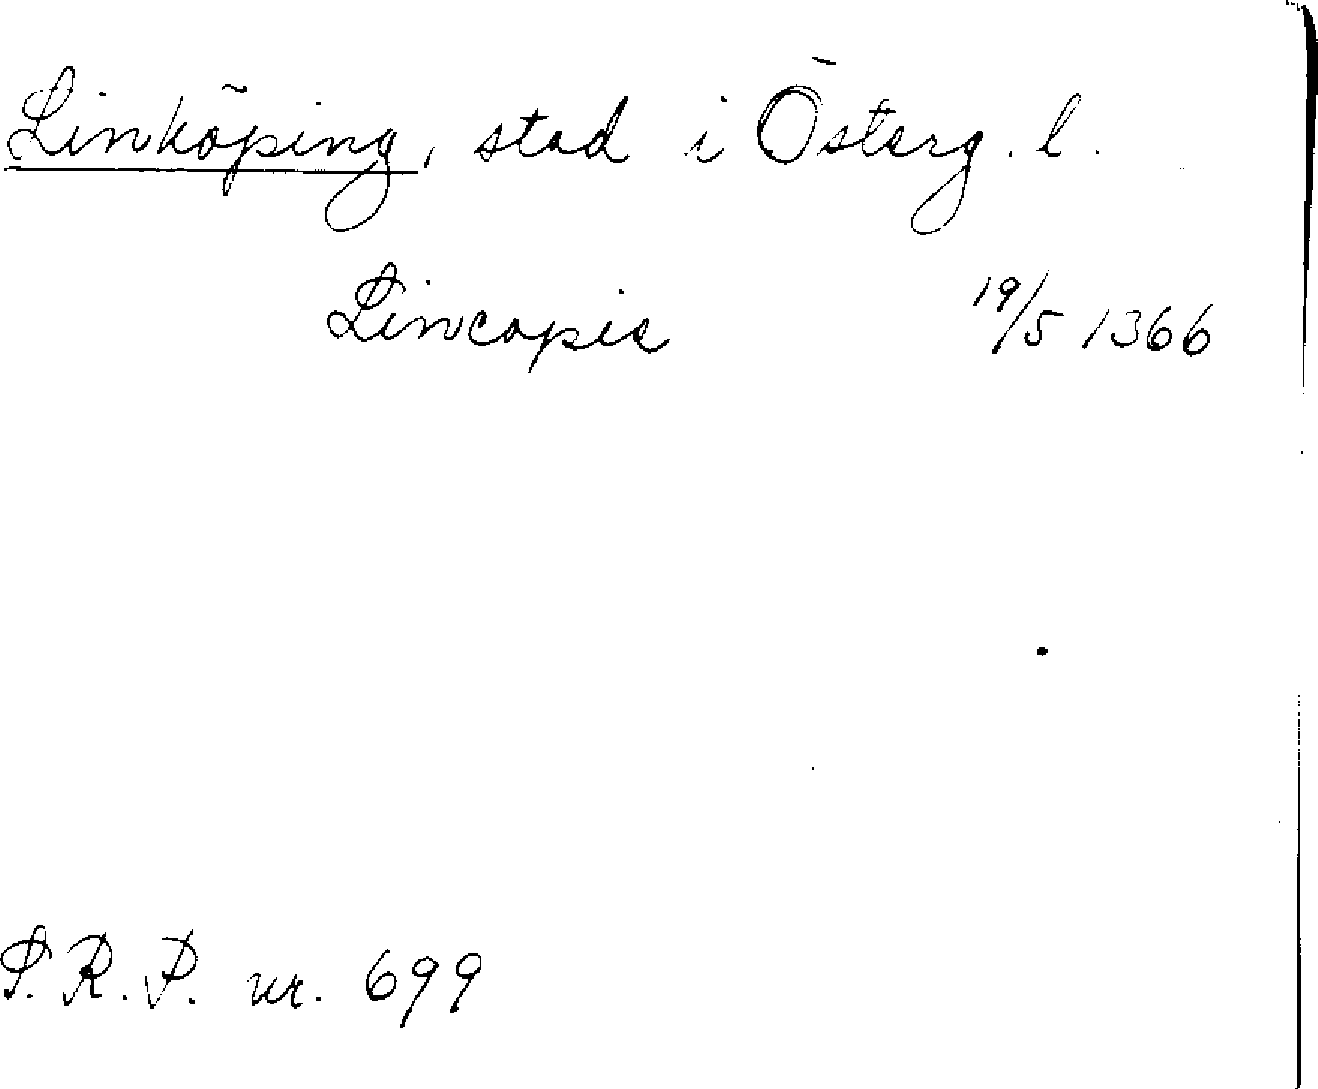 Linköping, stad i Österg. l.
Lincopie 19/5 1366
S.R.P. nr. 699